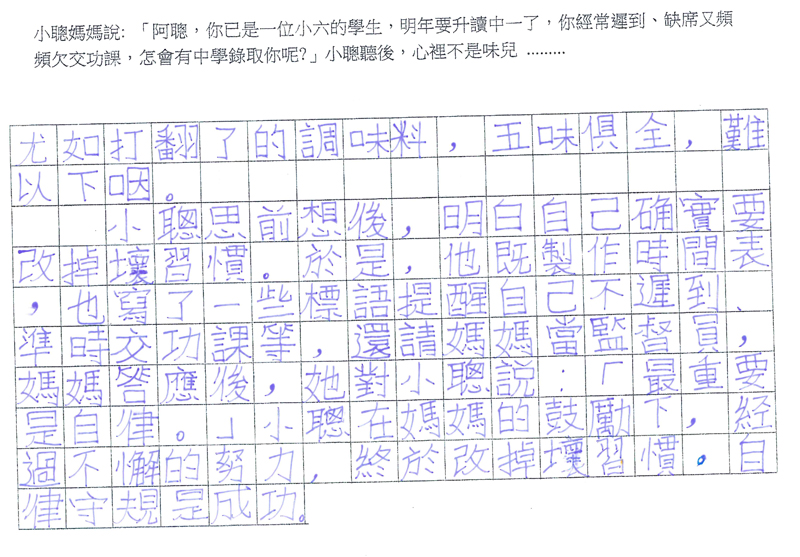 小聰媽媽說: 「阿聰，你已是一位小六的學生，明年要升讀中一了，你經常遲到、缺席又頻
頻欠交功課，怎會有中學錄取你呢?」小聰聽後，心裡不是味兒 .........
尤如打翻了的調味料，五味俱全，難
以下咽。
小聰思前想後，明白自己确實要
改掉壞習慣。於是，他既製作時間表
，也寫了一些標語提醒自己不遲到、
準時交功課等，還請媽媽當監督員，
媽媽答應後，她對小聰説：「最重要
是自律。」小聰在媽媽的鼓勵下，經
過不懈的努力，終於改掉壞習慣。自
律守規是成功。